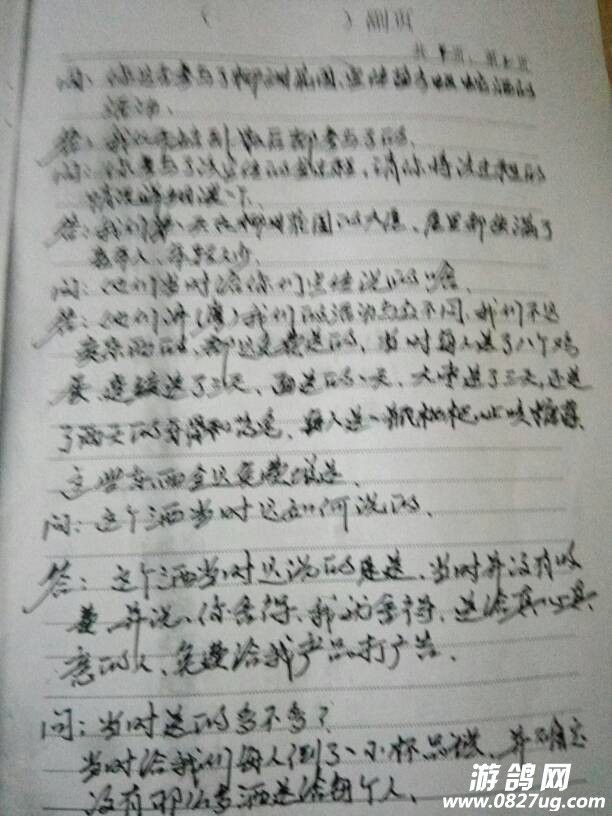 ( )副页
共 页，第 页
问：你是否参与了柳树花园、宣传 酒的
活动。
答：我从开始到最后都参与了的。
问：你参与了 的全过程，请你将该过程的
情况详细说一下。
答：我们第一天在柳树花园的大厅、屋里都挤满了
老年人、年轻人少。
问：他们当时给你们宣传说的啥。
答：他们讲(摩)我们的活动与众不同、我们不是
卖东西的、都是免费送的、当时每人送了八个鸡
蛋、连续送了三天、面送的一天、大米送了三天、还送
了两天的 、每人送一瓶枇杷止咳糖浆、
这些东西全是免费赠送。
问：这个酒当时是如何说的。
答：这个酒当时是说的是送、当时并没有收
费、并说、你舍得、我就舍得、送给真心真
意的人、免费给我产品打广告。
问：当时送的多不多？
当时给我们每人倒了一小杯品尝、并确定
没有那么多酒送给每个人、
游鸽网
www.0827ug.com